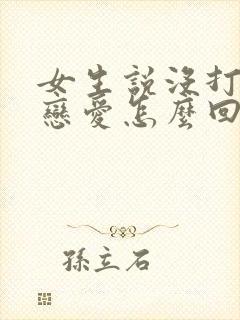 女生說沒打
戀愛怎麼回
孫立石